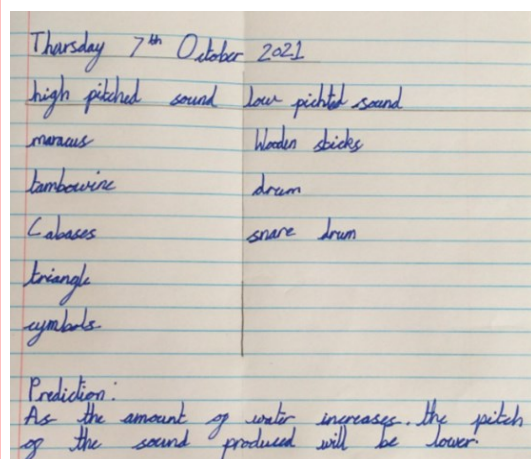 Thursday 7th October 2021
high pitched sound low pichted sound
maracus Wooden sticks
tambowine drum
Cabases snare drum
triangle
cymbols
Prediction:
As the amount of water increases, the pitch
of the sound produced will be lower.